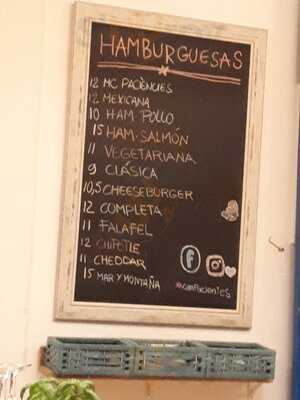 HAMBURGUESAS
12 MC PACIÈNCIES
12 MEXICANA
10 HAM POLLO
15 HAM. SALMÓN
11 VEGETARIANA
9 CLÁSICA
10,5 CHEESEBURGER
12 COMPLETA
11 FALAFEL
12 CHIPOTLE
11 CHEDDAR
15 MAR Y MONTAÑA